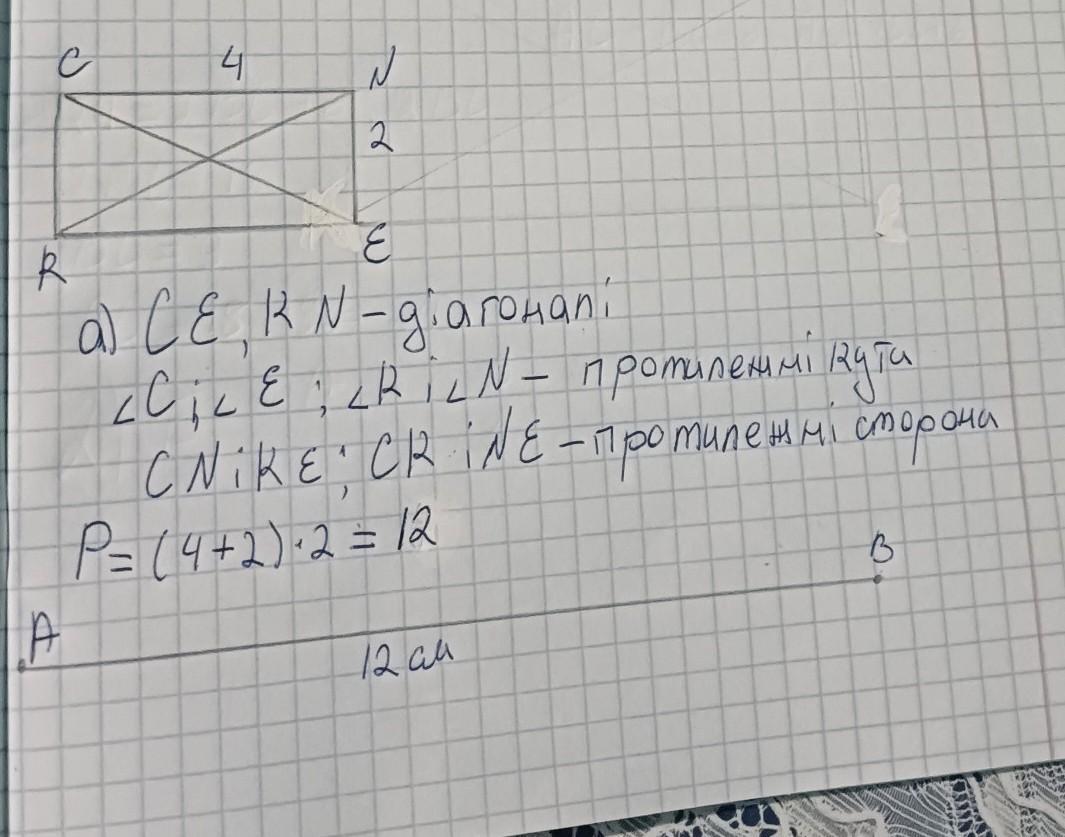 C 4 N
2
R E
а) CE, RN – діагоналі
∠C і ∠E ; ∠R і ∠N – протилежні кути
CN і RE ; CR і NE – протилежні сторона
P = (4+2)·2 = 12
B
A
12 см